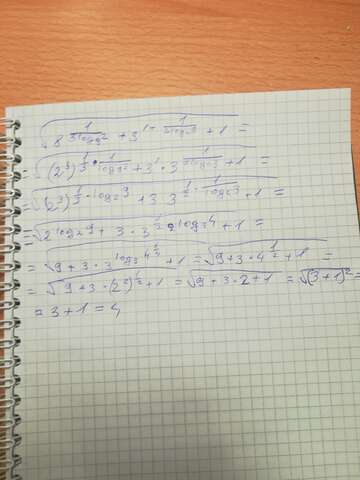 √(8^(1/(3log₉2)) + 3^(1+1/(2log₄3)) + 1) =
= √((2³)^(1/3 · 1/(log₉2)) + 3¹ · 3^(1/(2log₄3)) + 1) =
= √((2³)^(1/3 · log₂9) + 3 · 3^(1/2 · 1/(log₄3)) + 1 =
= √(2^(log₂9) + 3 · 3^(1/2 log₃4) + 1 =
= √(9 + 3 · 3^(log₃4^(1/2)) + 1) = √(9 + 3 · 4^(1/2) + 1) =
= √(9 + 3 · (2²)^(1/2) + 1) = √(9 + 3 · 2 + 1) = √((3+1)²) =
= 3 + 1 = 4